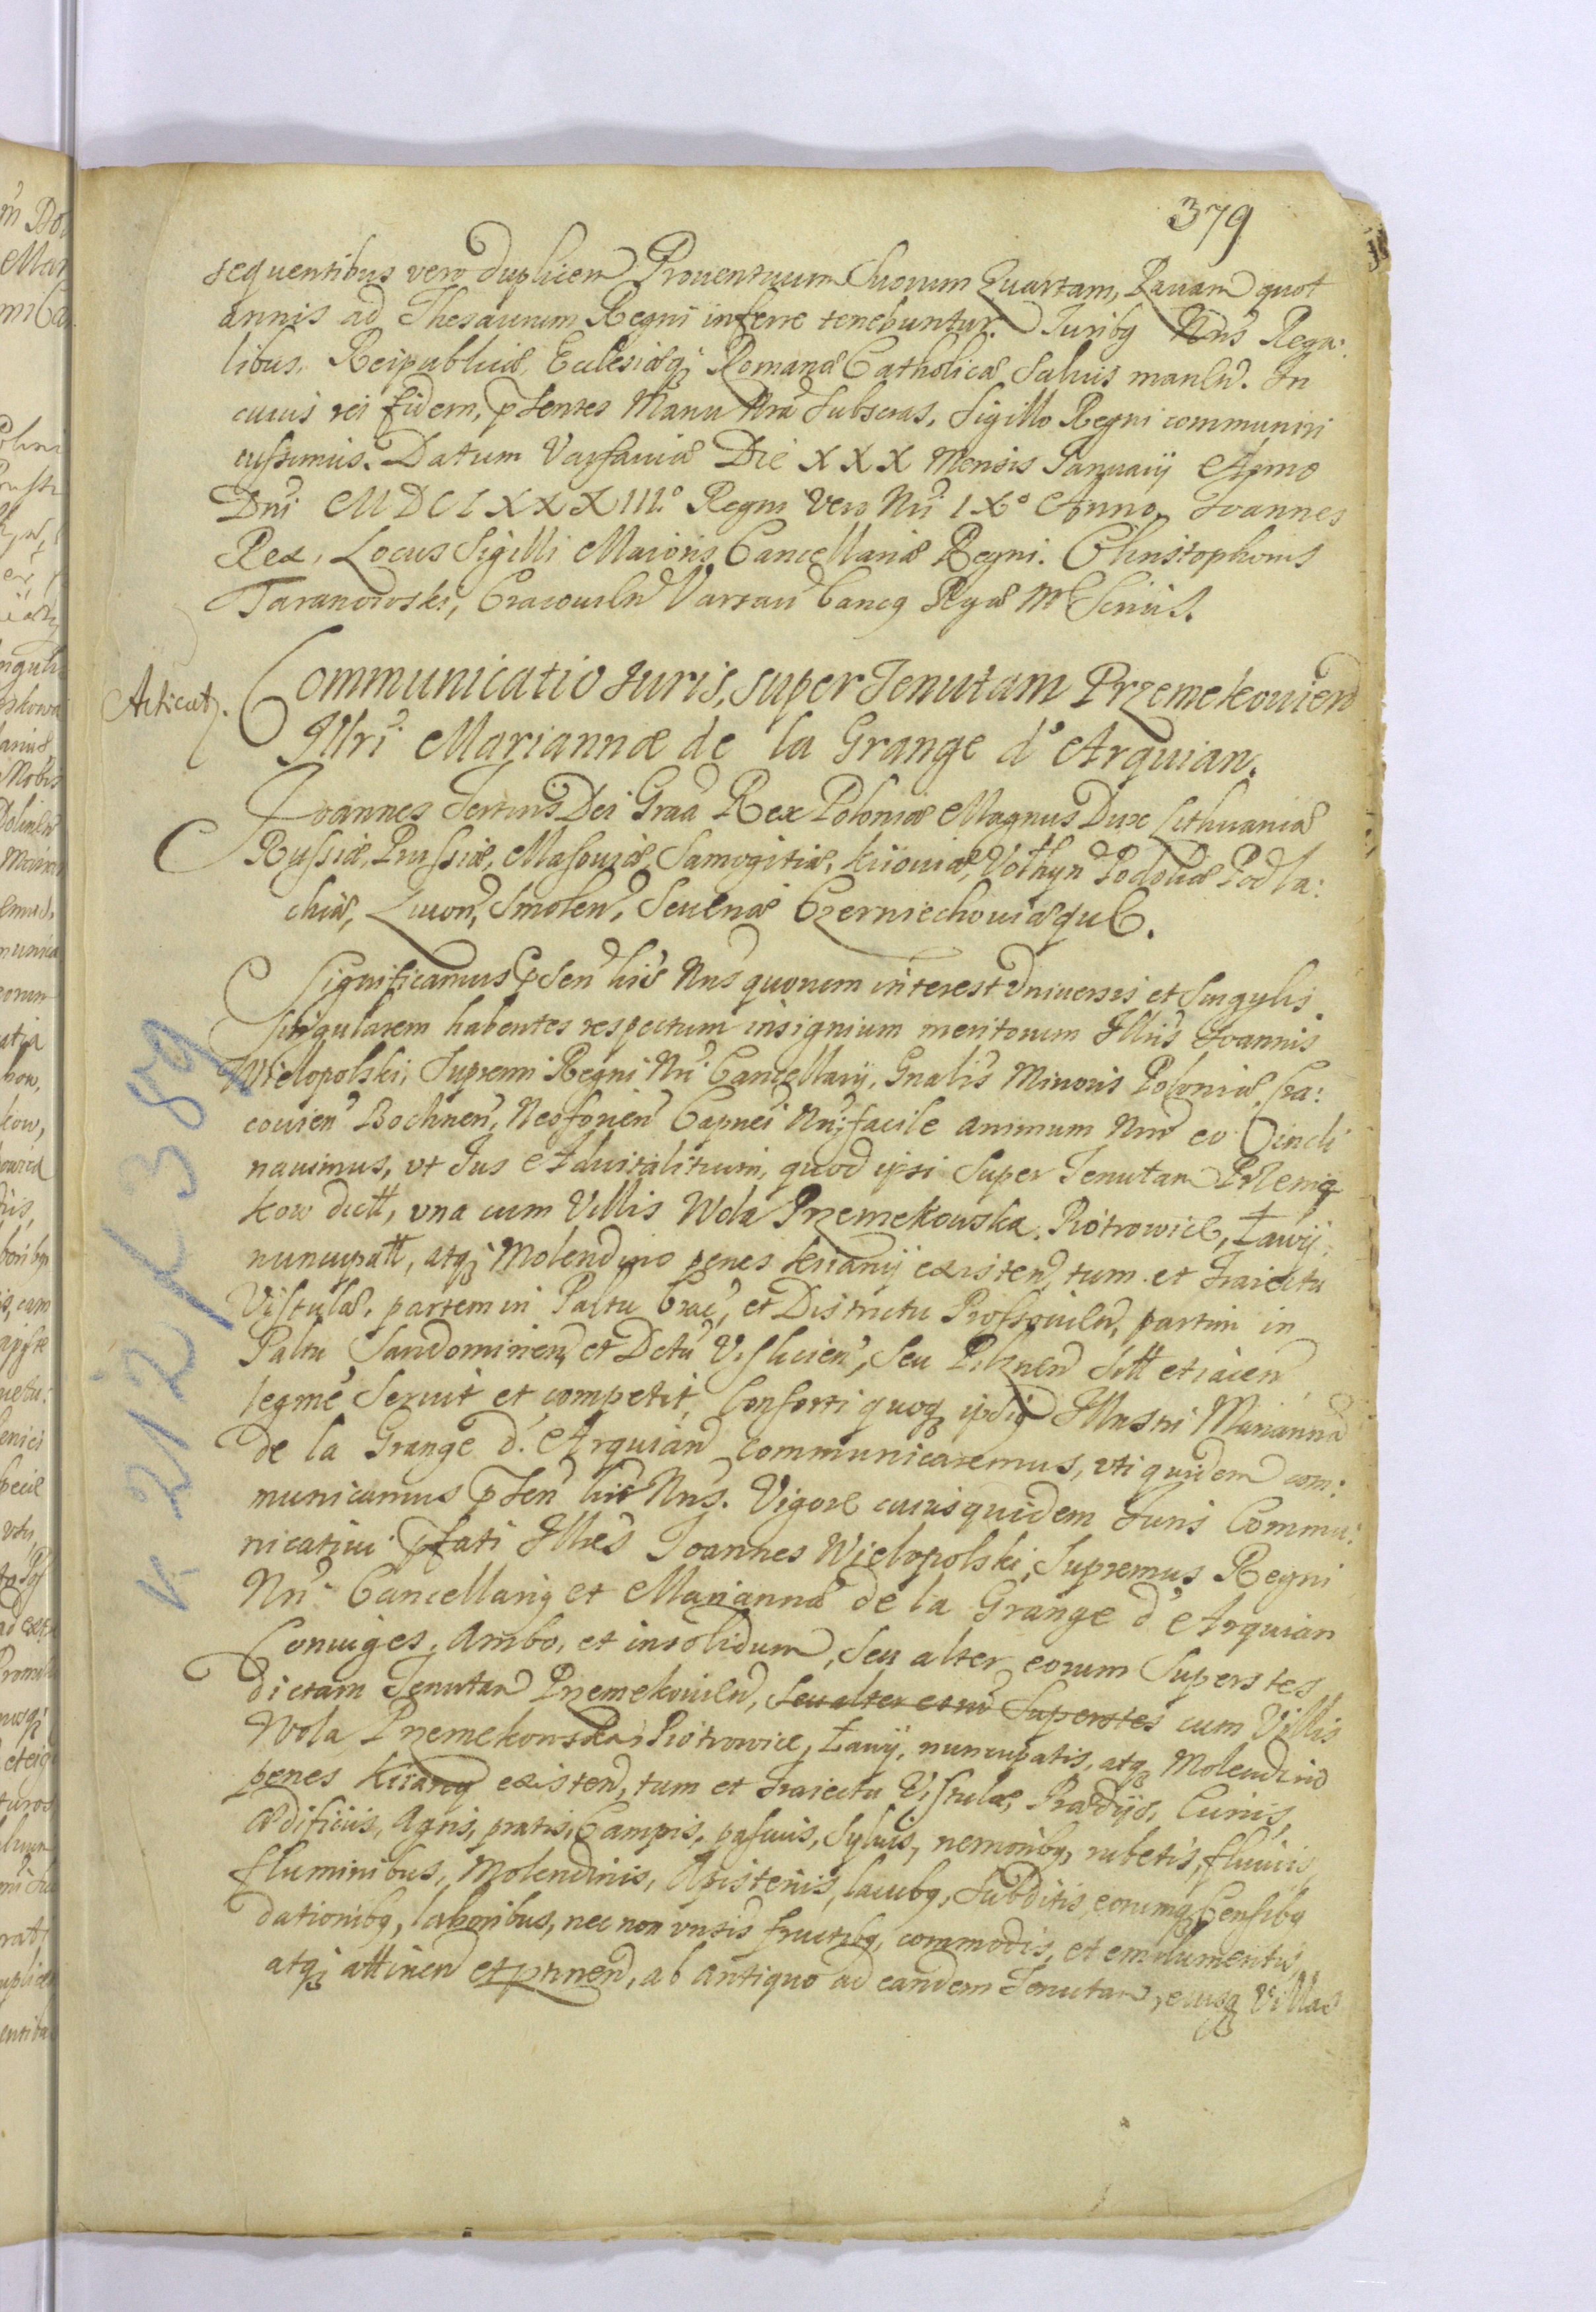 379
sequentibus vero duplicem Prouentuum Suorum Quartam, Rauam quot
annis ad Thesaurum Regni inferre tenebuntur. Iuribq Nris Rega:
libus, Reipublicæ, Ecclesiæq; Romanæ Catholicæ Saluis manen. In
cuius rei fidem, pntes Manu Nra Subscras, Sigillo Regni communiri
iussimus. Datum Varsauiæ Die XXX Mensis Ianuarij Anno
Dni MDCLXXXIII.° Regni Vero Nri IX° Anno. Ioannes
Rex, Locus Sigilli Maioris Cancellariæ Regni. Christophorus
Taranowski, Cracouien Varsau Cancq Regæ Mtis
Acticat.
Communicatio Iuris, super Tenutam Przemekouien
Illri Mariannæ de la Grange d'Arquian.
Ioannes Tertius Dei Graa Rex Poloniæ Magnus Dux Lithuaniæ
Russiæ, Prussiæ, Masouiæ, Samogitiæ, Kiiouiæ, Volhyn Podoliæ Podla:
chiæ, Liuon, Smolen, Seueriæ Czerniechouiæq
Significamus pnsen lris Nris quorum interest Vniuersis et Singulis.
Singularem habentes respectum insignium meritorum Illris Ioannis
Wielopolski, Supremi Regni Nri Cancellarij, Gnalis Minoris Poloniæ, Cra:
couien Bochnen, Neoforien Capnei Nri, facile animum Nrm eo incli
nauimus, vt Ius aduitalitium, quod ipsi Super Tenutam Przemę
kow dictt, vna cum Villis Wola Przemekowska, Piotrowice, Ławij,
nuncupatt, atq; Molendino penes existen, tum et Traiectu
Vistulæ, partem in Paltu Crac, et Districtu Proszouien, partim in
Paltu Sandomirien, et Dctu Vislicien, Seu Pilznen Sitt et iacen
legme Seruit et competit, Consorti quoq ipsiq Illustri Mariannæ
de la Grange d'Arquian communicaremus, vti quidem com:
municamus pnsen lris Nris. Vigore cuius quidem Iuris Commu:
nicatiui pfati Illres Ioannes Wielopolski, Supremus Regni
Nri Cancellariq et Marianna de la Grange d'Arquian
Coniuges, ambo, et insolidum, Seu alter eorum Superstes
dictam Tenutam Przemekouien, Seu alter eorum Superstes cum Villis
Wola Przemekowska, Piotrowice, Ławij, nuncupatis, atq Molendino
penes existen, tum et Traiectu Vistulæ, Prædijs, Curiis,
ædificiis, Agris, pratis, Campis, pascuis, Syluis, nemoribq, rubetis, fluuiis
fluminibus, Molendinis, Piscinis, lacubq, Subditis, eorumq Censibq
dationibq, laboribus, nec non vnsis fructibq, commodis, et emolumentis
atq; attinen et ptinen, ab antiquo ad eandem Tenutam, eiusq Villas
K 212 K 389